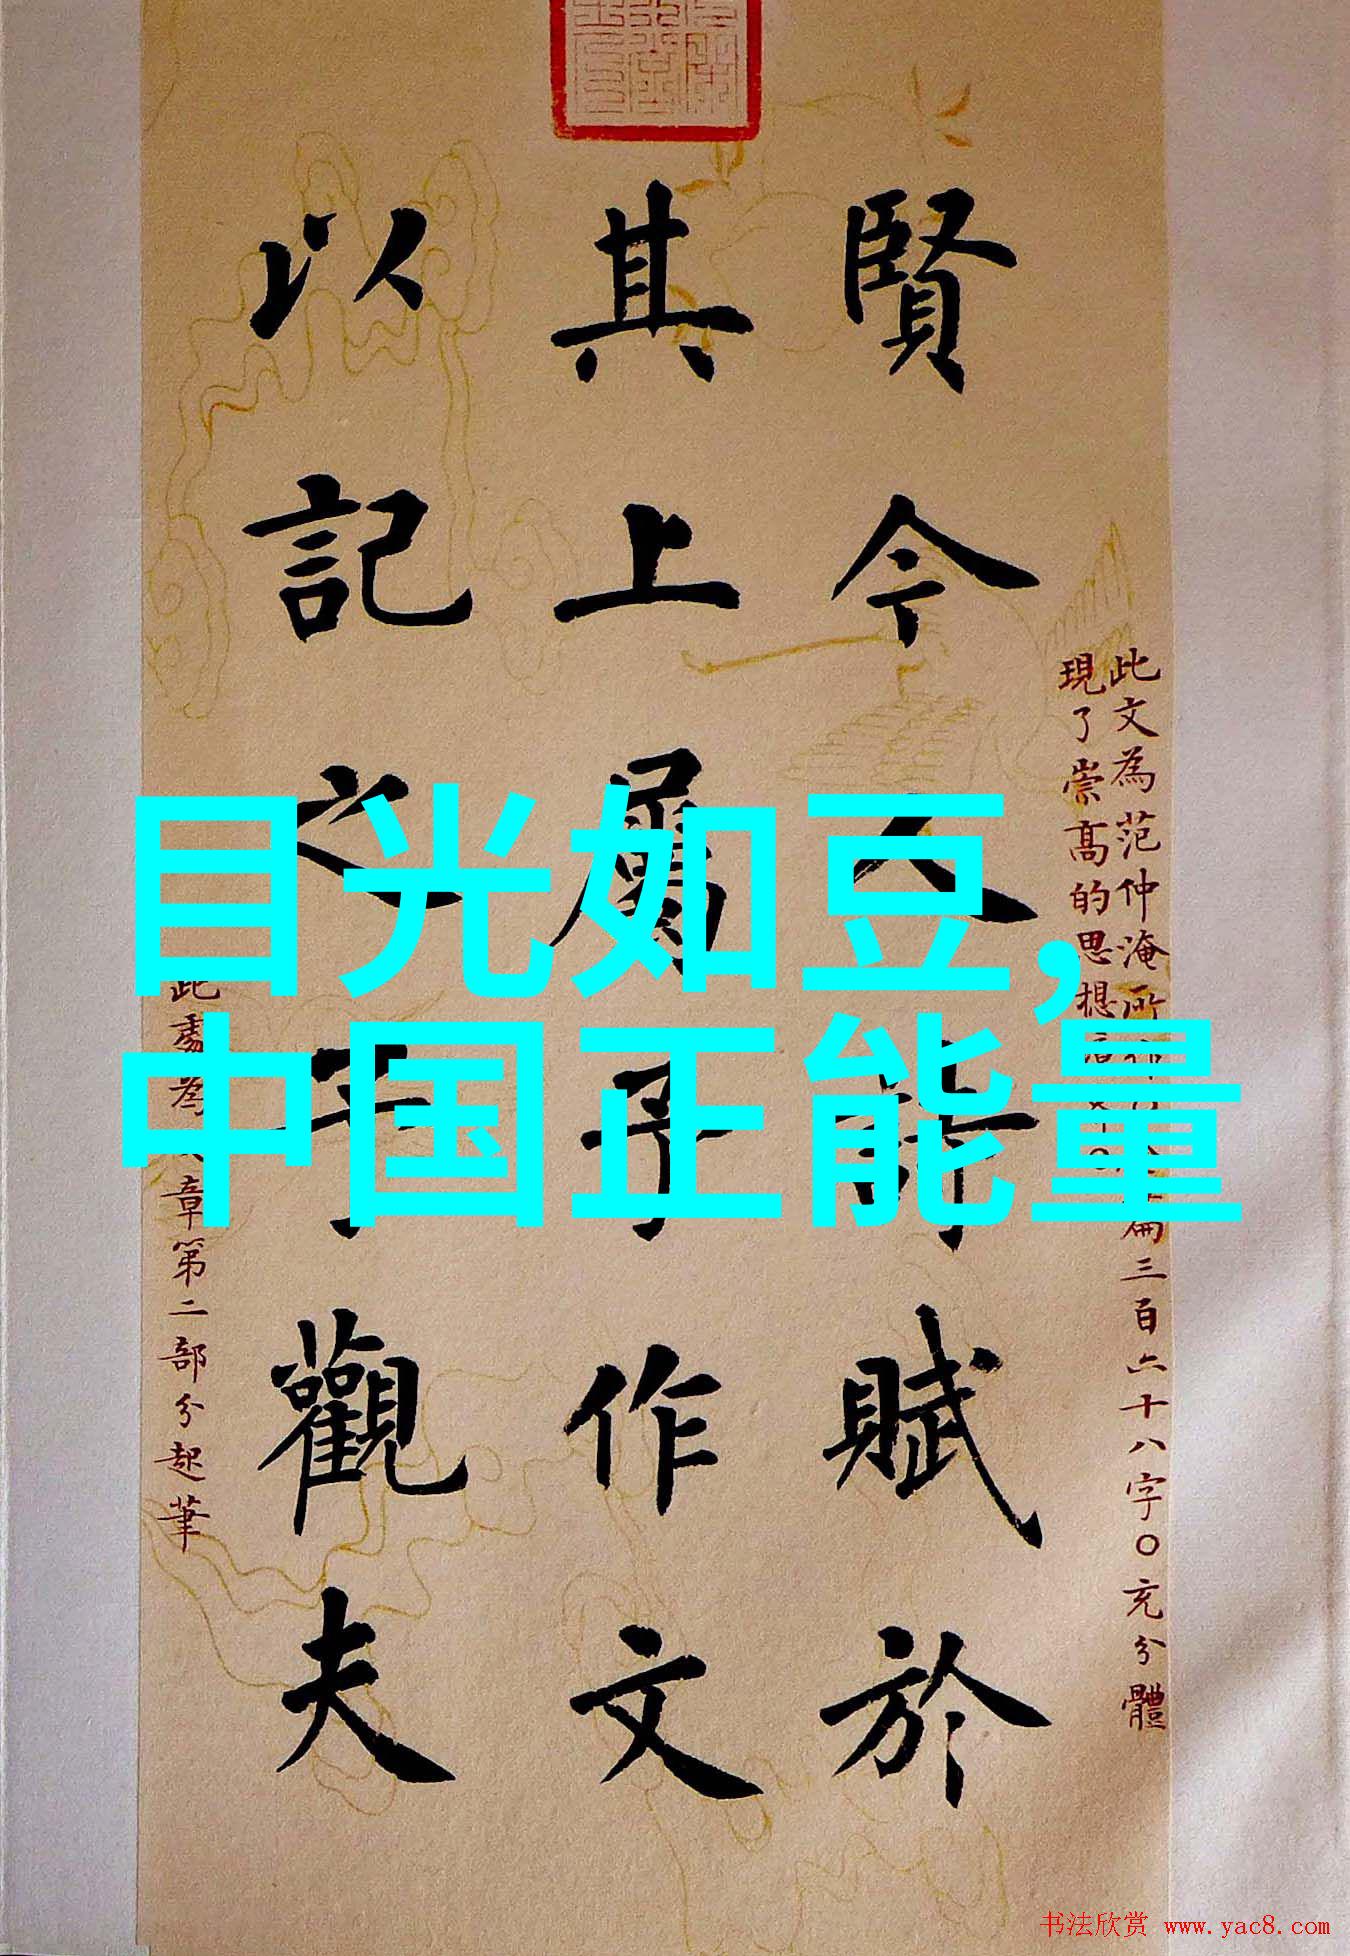 賢今人詩賦於
其上屬予作文
以記之予觀夫
此文為范仲淹所
篇三百六十八字〇充分體
現了崇高的思想
此處為
章第二部分起筆
目光如豆,
中国正能量
书法欣赏 www.yac8.com